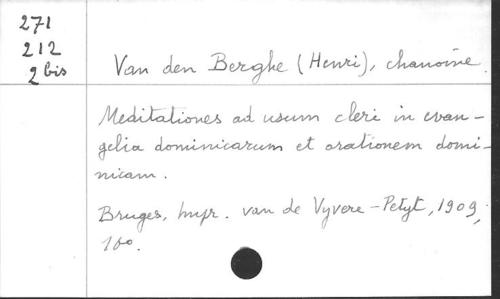 271
212
2 bis
Van den Berghe (Henri), chanoine.
Meditationes ad usum cleri in evan-
gelia dominicarum et orationem domi-
nicam.
Bruges, Impr. van de Vyvere-Petyt, 1909,
16o.